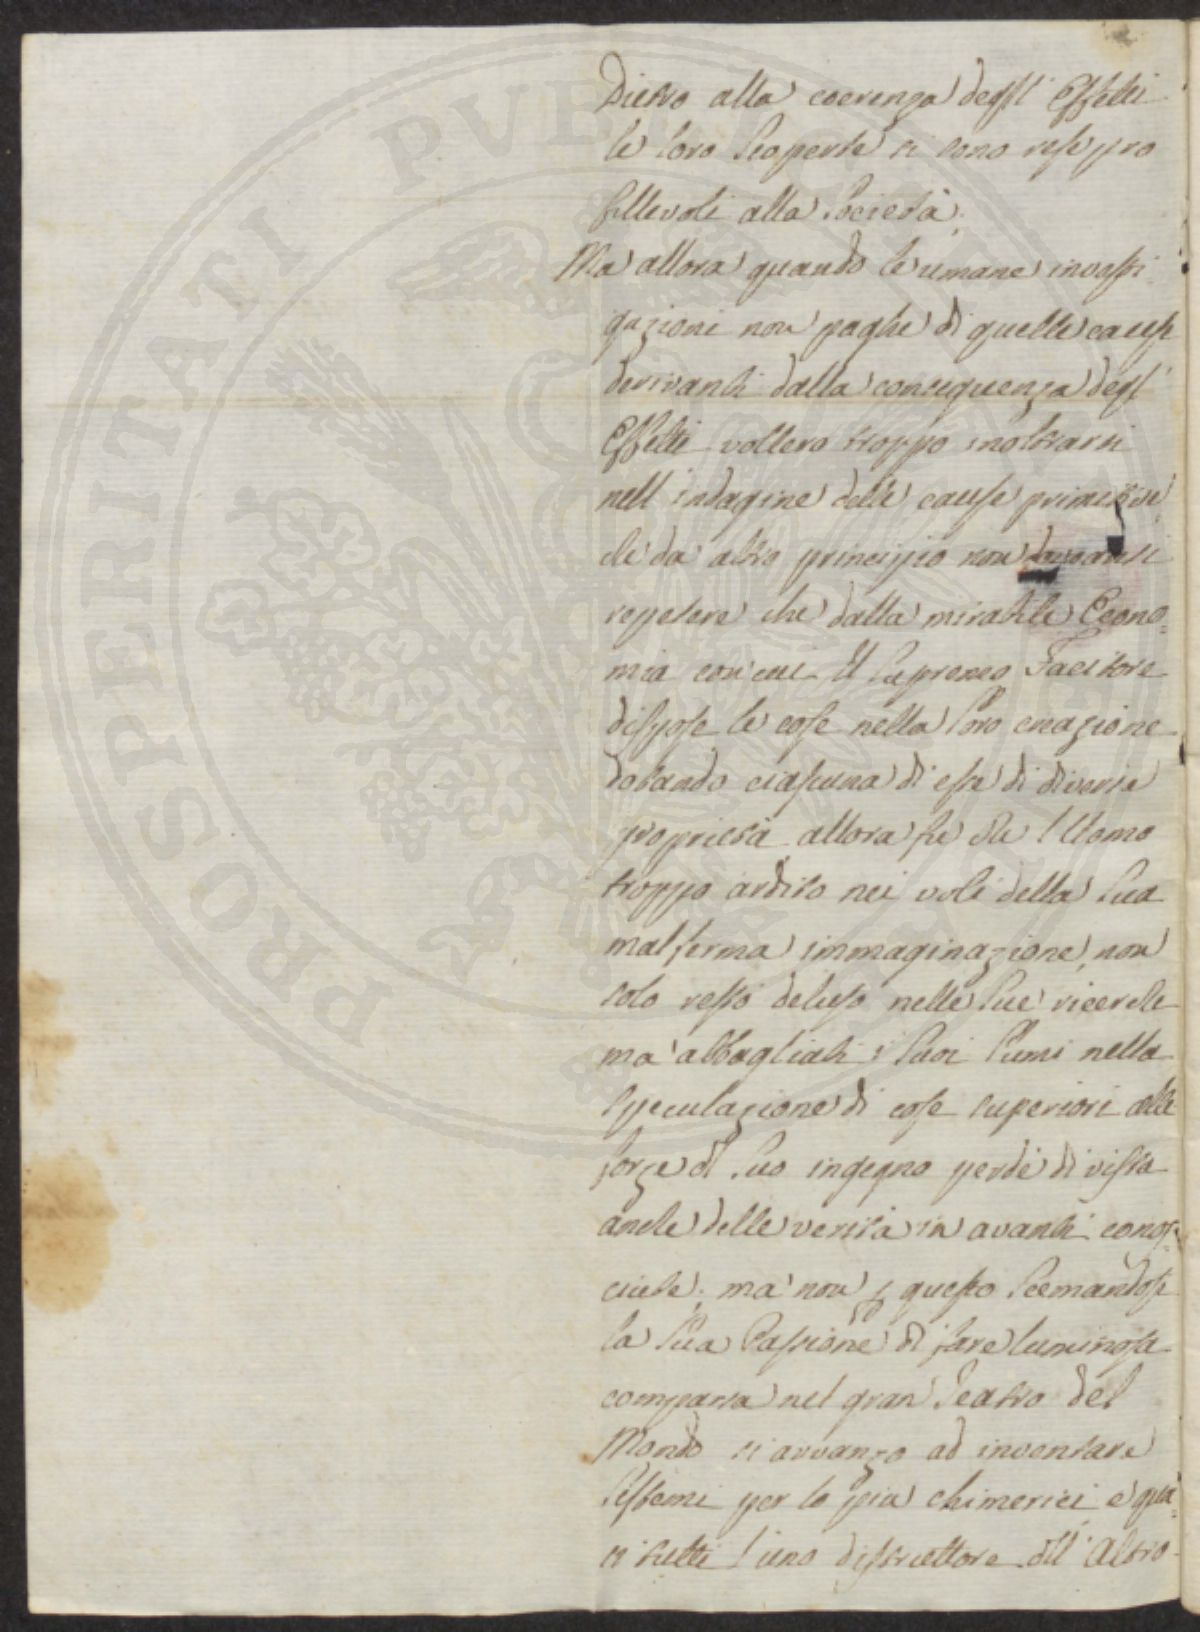 Dietro alla coerenza degl' Effetti
le loro scoperte si sono rese pro
fittevoli alla Società.
Ma allora quando le umane investi
gazioni non paghe di quelle cause
derivanti dalla conseguenza degl'
Effetti vollero troppo inoltrarsi
nell'indagine delle cause primitive
che da altro principio non
repetere che dalla mirabile Econo=
mia con cui Il Supremo Facitore
dispose le cose nella loro creazione
dotando ciascuna di esse di diverse
proprietà allora fu che l'Uomo
troppo ardito nei voli della sua
malferma immaginazione, non
solo restò deluso nelle sue ricerche
ma abbagliati i suoi lumi nella
speculazione di cose superiori alle
forze del suo ingegno perdè di vista
anche delle verità in avanti conos=
ciute; ma non p questo scemandosi
la sua Passione di fare luminosa
comparsa nel gran Teatro del
Mondo si avvanzo ad inventare
sistemi per lo più chimerici e qua=
si tutti l'uno distruttore dell'Altro
PROSPERITATI PUBLICAE